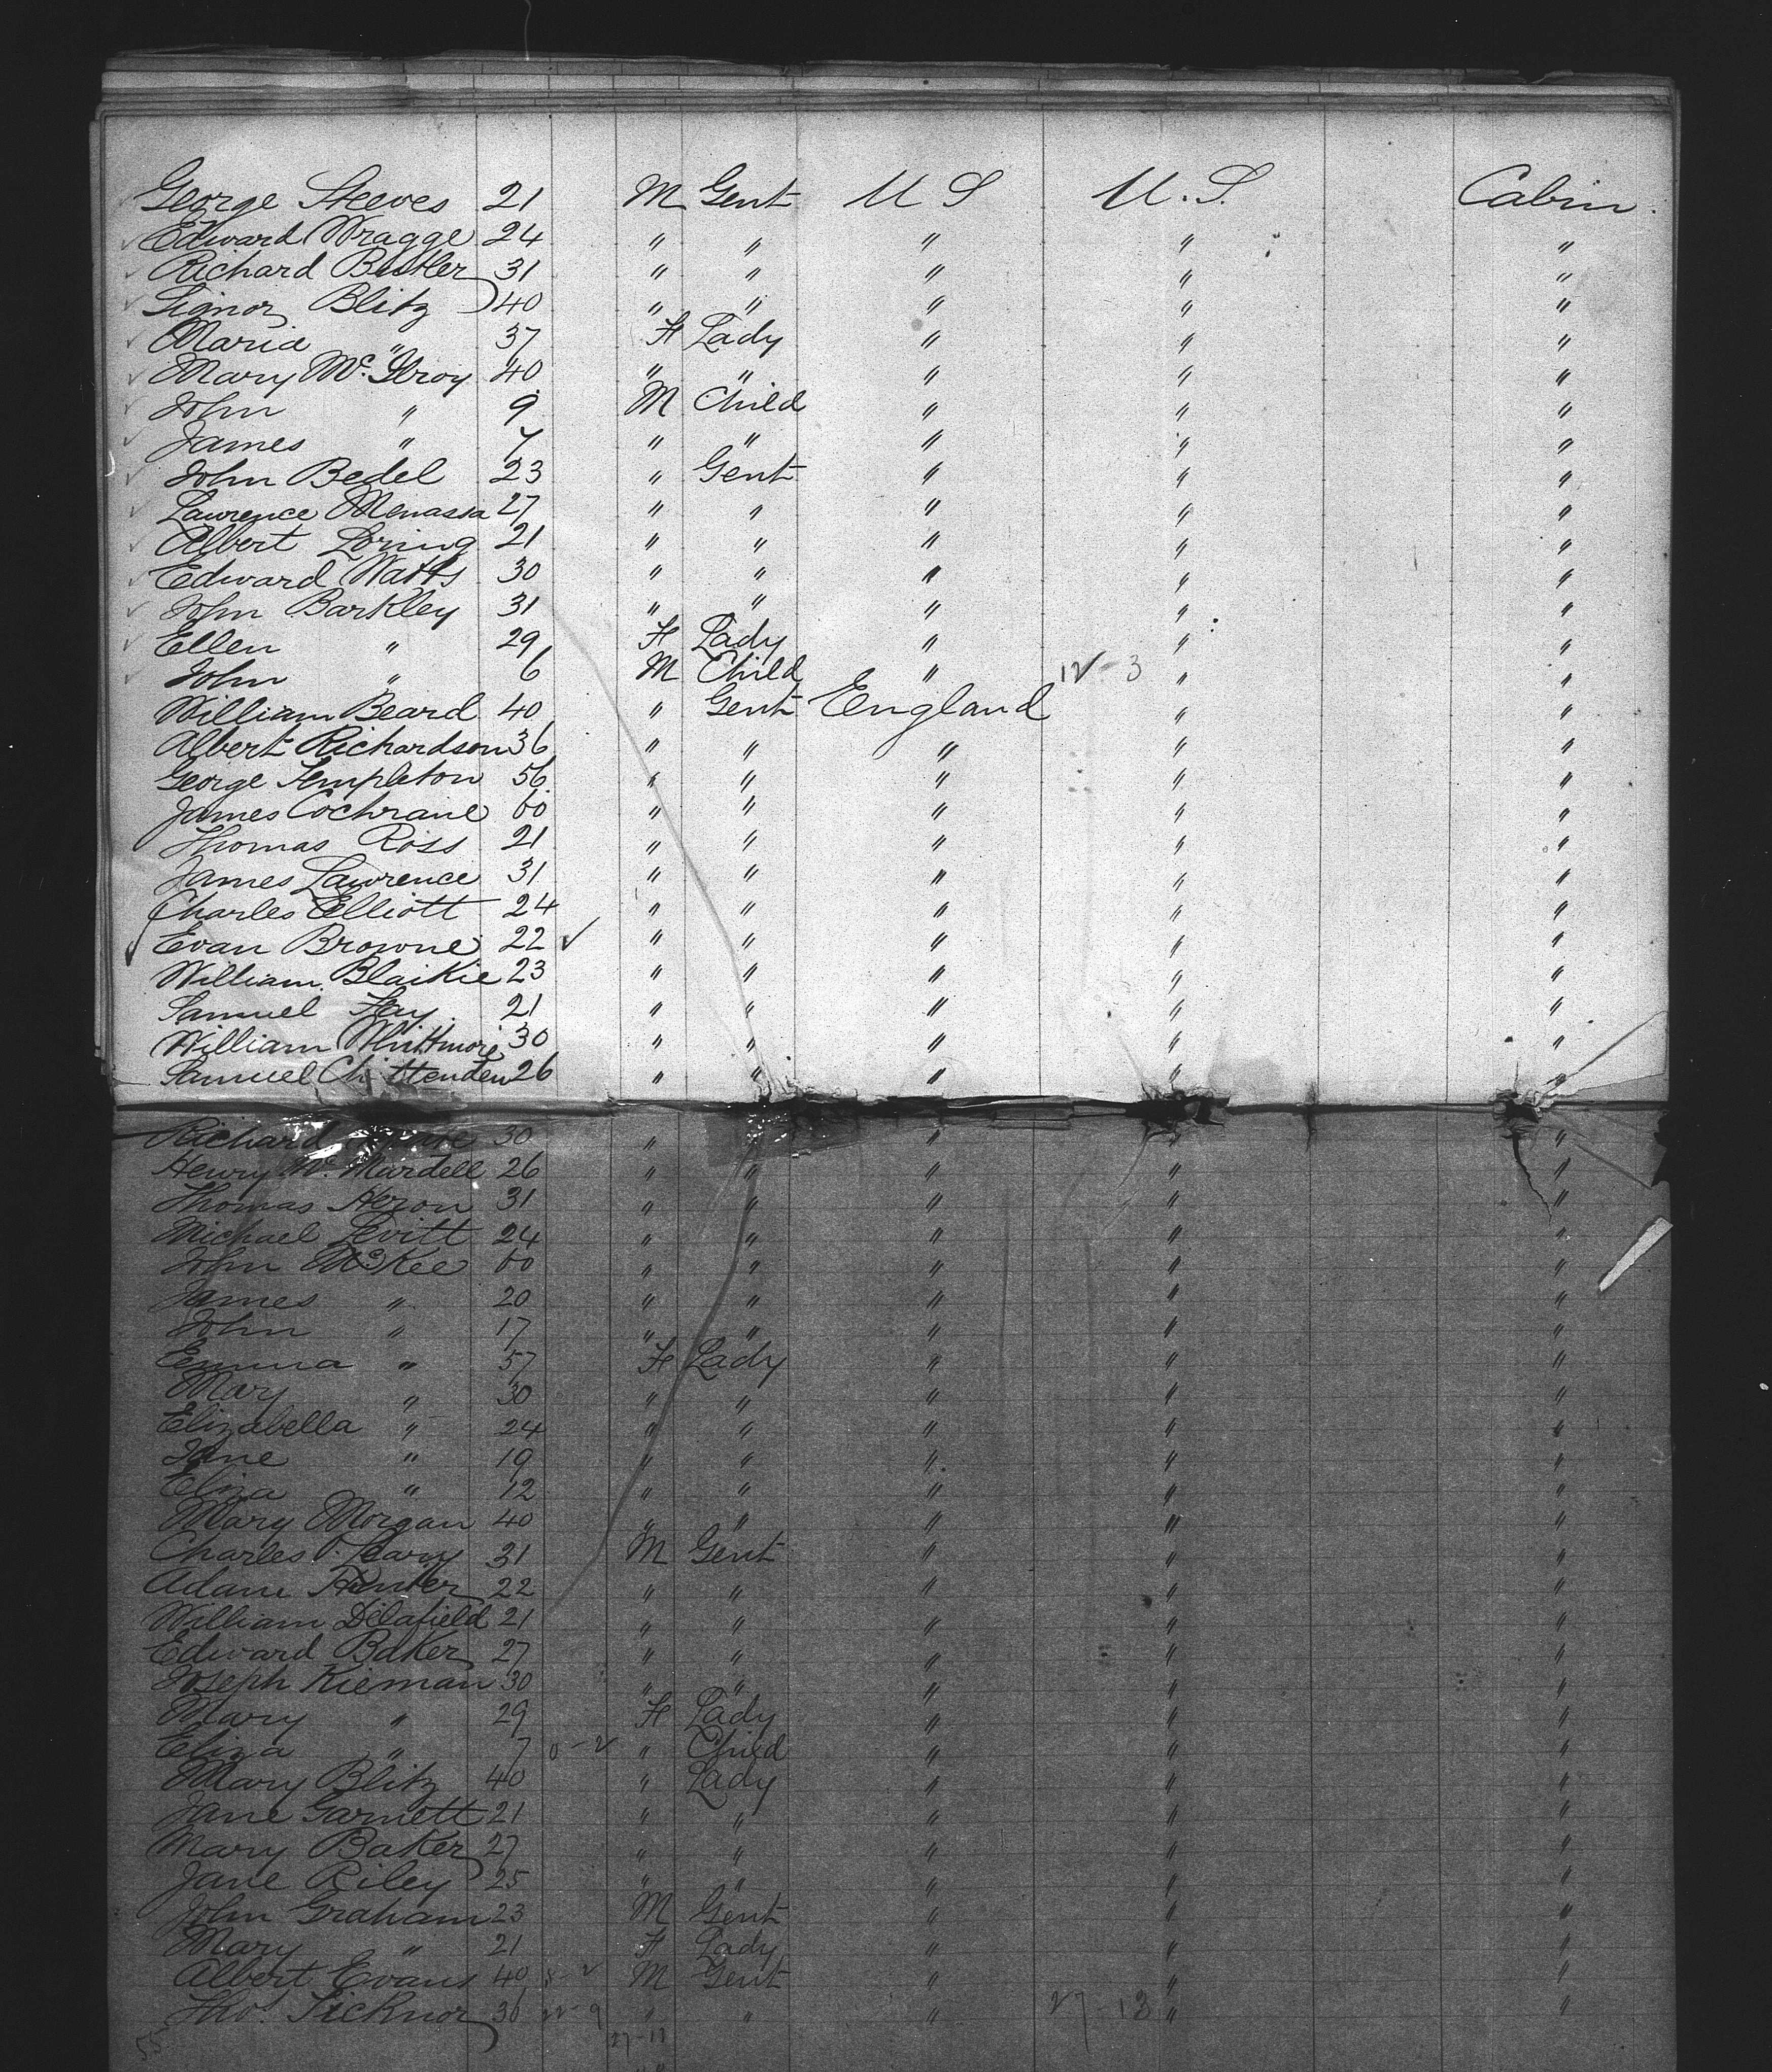 George Steeves 21 M Gent U S U.S. Cabin
Edward Wragge 24 " " " " "
Richard Butler 31 " " " " "
Signor Blitz 40 " " " " "
Maria " 37 F Lady " " "
Mary McIlroy 40 " " " " "
John " 9 M Child " " "
James " 7 " " " " "
John Bedel 23 " Gent " " "
Lawrence Menassa 27 " " " " "
Albert Loring 21 " " " " "
Edward Watts 30 " " " " "
John Barkley 31 " " " " "
Ellen " 29 F Lady " " "
John " 6 M Child " 12-3 " "
William Beard 40 " Gent England " "
Albert Richardson 36 " " " " "
George Templeton 56 " " " " "
James Cochrane 60 " " " " "
Thomas Ross 21 " " " " "
James Lawrence 31 " " " " "
Charles Elliott 24 " " " " "
Evan Browne 22 ✓ " " " " "
William Blaikie 23 " " " " "
Samuel Hay 21 " " " " "
William Whittmore 30 " " " " "
Samuel Chittenden 26 " " " " "
Richard 30 " " " " "
Henry Mc Mardell 26 " " " " "
Thomas Heron 31 " " " " "
Michael Levitt 24 " " " " "
John McKee 60 " " " " "
James " 20 " " " " "
John " 17 " " " " "
Emma " 57 F Lady " " "
Mary " 30 " " " " "
Elizabella " 24 " " " " "
Jane " 19 " " " " "
Eliza " 12 " " " " "
Mary Morgan 40 " " " " "
Charles Leary 31 M Gent " " "
Adam Hunter 22 " " " " "
William Delafield 21 " " " " "
Edward Baker 27 " " " " "
Joseph Kiernan 30 " " " " "
Mary " 29 F Lady " " "
Eliza " 7 0-2 " Child " " "
Mary Blitz 40 " Lady " " "
Jane Garnett 21 " " " " "
Mary Baker 27 " " " " "
Jane Riley 25 " " " " "
John Graham 23 M Gent " " "
Mary " 21 F Lady " " "
Albert Evans 40 M Gent " " "
Thos. Ticknor 36 22-9 " " " 27-13 " "
55 27-13